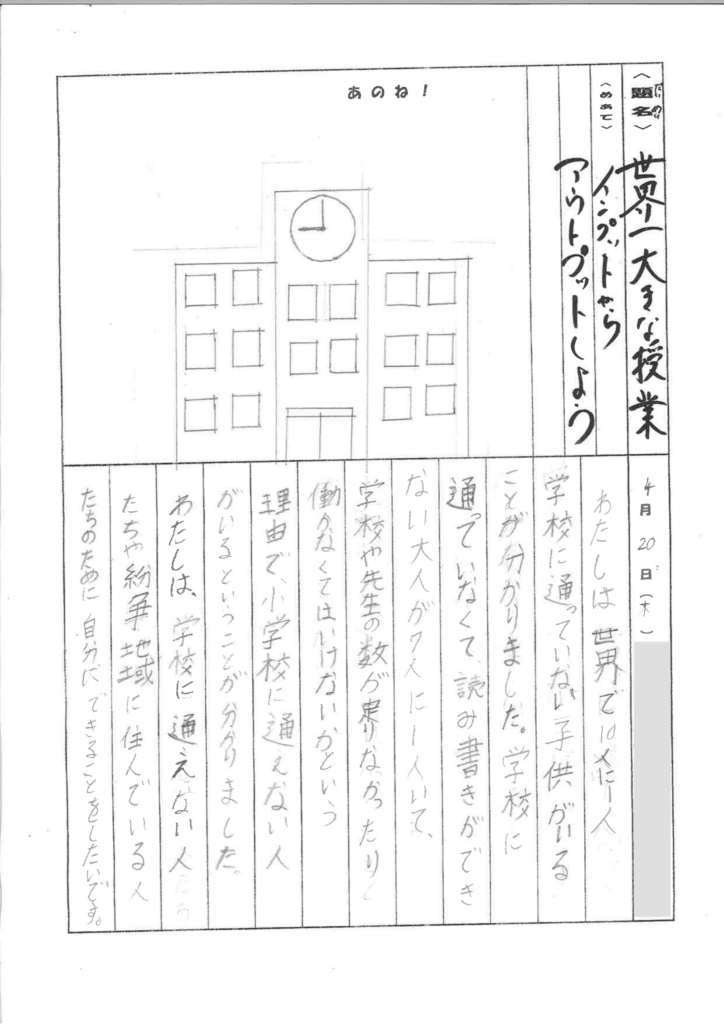 あのね!
〈題名〉 世界一大きな授業
だいめい
〈めあて〉 インプットから
アウトプットしよう
4月20日(木)
わたしは世界で10人に1人
学校に通っていない子供がいる
ことが分かりました。学校に
通っていなくて、読み書きができ
ない大人が7人に1人いて、
学校や先生の数が足りなかったり
働かなくてはいけないかという
理由で、小学校に通えない人
がいるということが分かりました。
わたしは、学校に通えない人
たちや紛争地域に住んでいる人
たちのために自分にできることをしたいです。